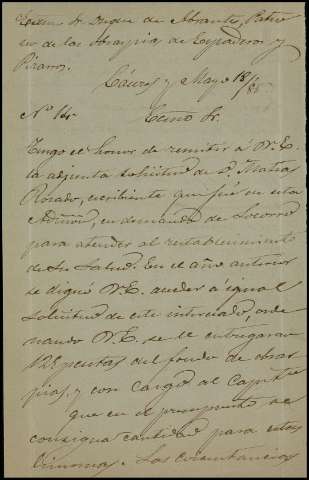 Excmo Sr Duque de Abrantes, Patro
no de las Obras pias de Espaderos y
Pizarros.
Cáceres 7 Mayo 18/86
Nº 14.
Excmo Sr.
Tengo el honor de remitir á V. E.
la adjunta solicitud de D. Matias
Rosado, escribiente que fué en esta
Admón, en demanda de Socorro
para atender al restablecimiento
de su Salud. En el año anterior
se dignó V. E. acceder á igual
solicitud de este interesado, orde
nando V. E. se le entregaran
125 pesetas del fondo de obras
pias, y con cargo al Capitulo
que en el presupuesto se
consigna cantidad para estas
limosnas. Las circunstancias